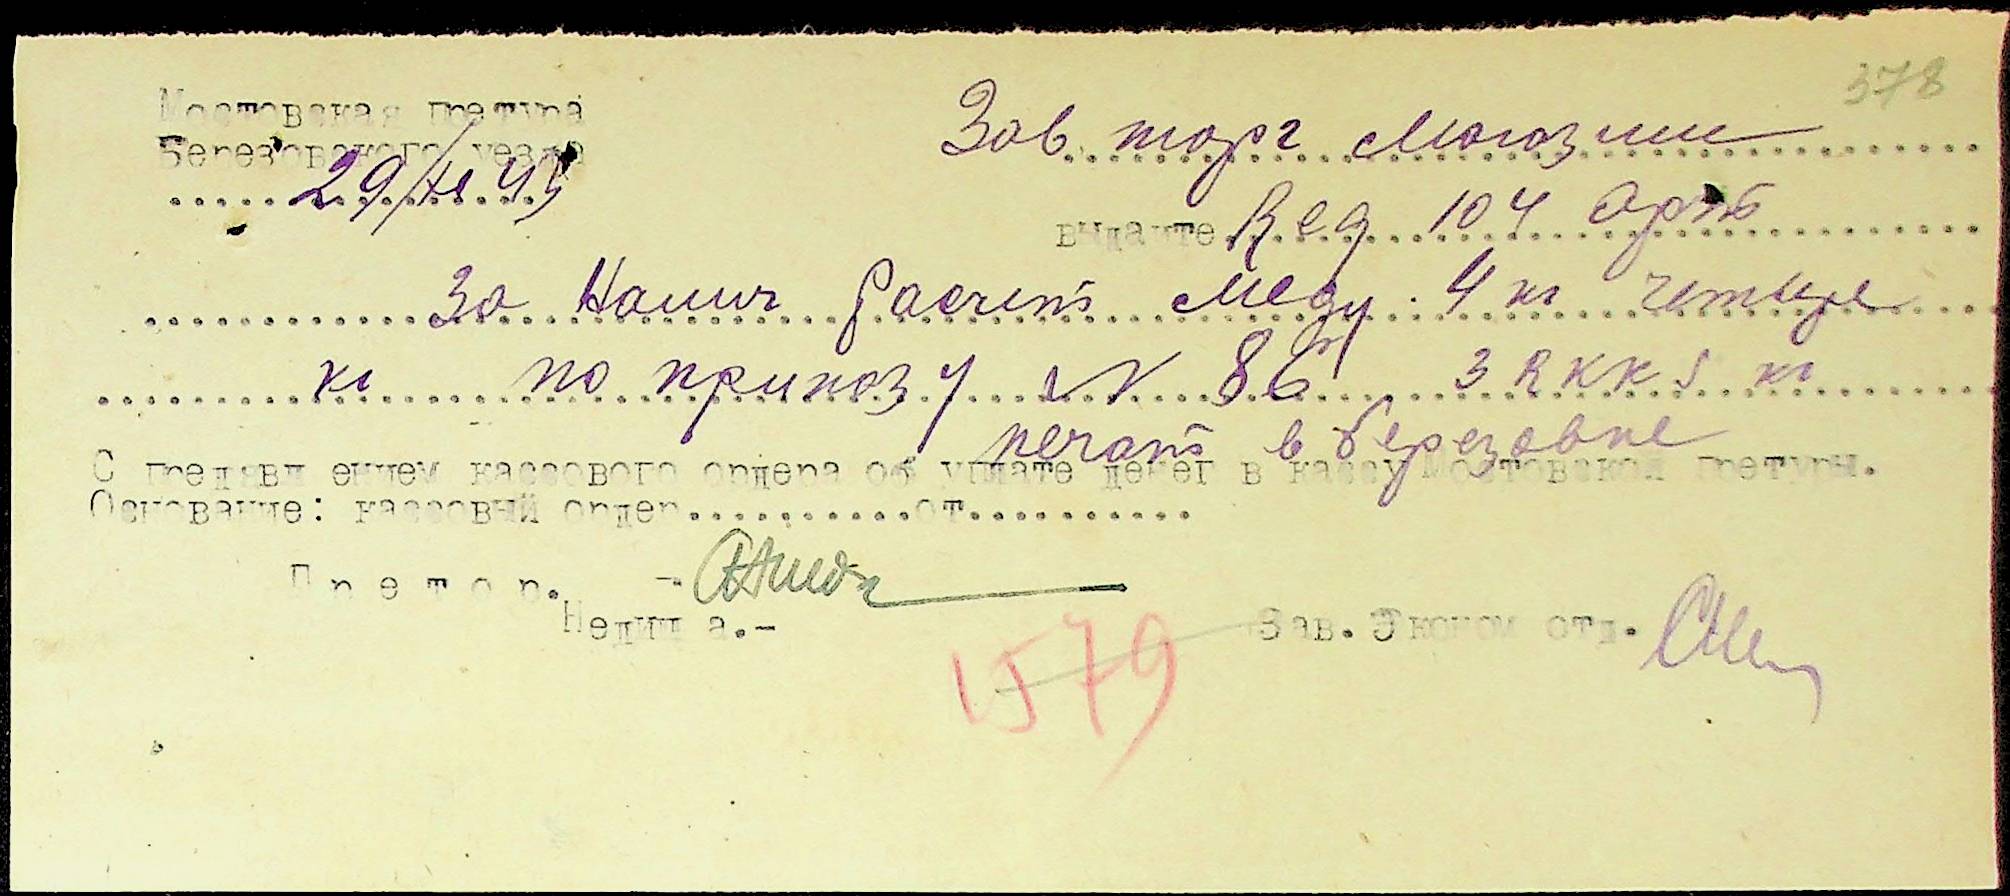 378
Мостовская претура
Березовского уезда
Зав. торг магозин
29/XI 43
выдайте Reg 104 Арт
За Налич расчет меду 4 кг четыре
кг по приказу N 86 3 RKK 5 кг
печать в березовке
С предявл ением кассового ордера об уплате денег в кассу Мостовской претуры.
Основание: кассовый ордер...........от..........
П р е т о р. -
Недищ а.-
Зав. Эконом отд.
1579